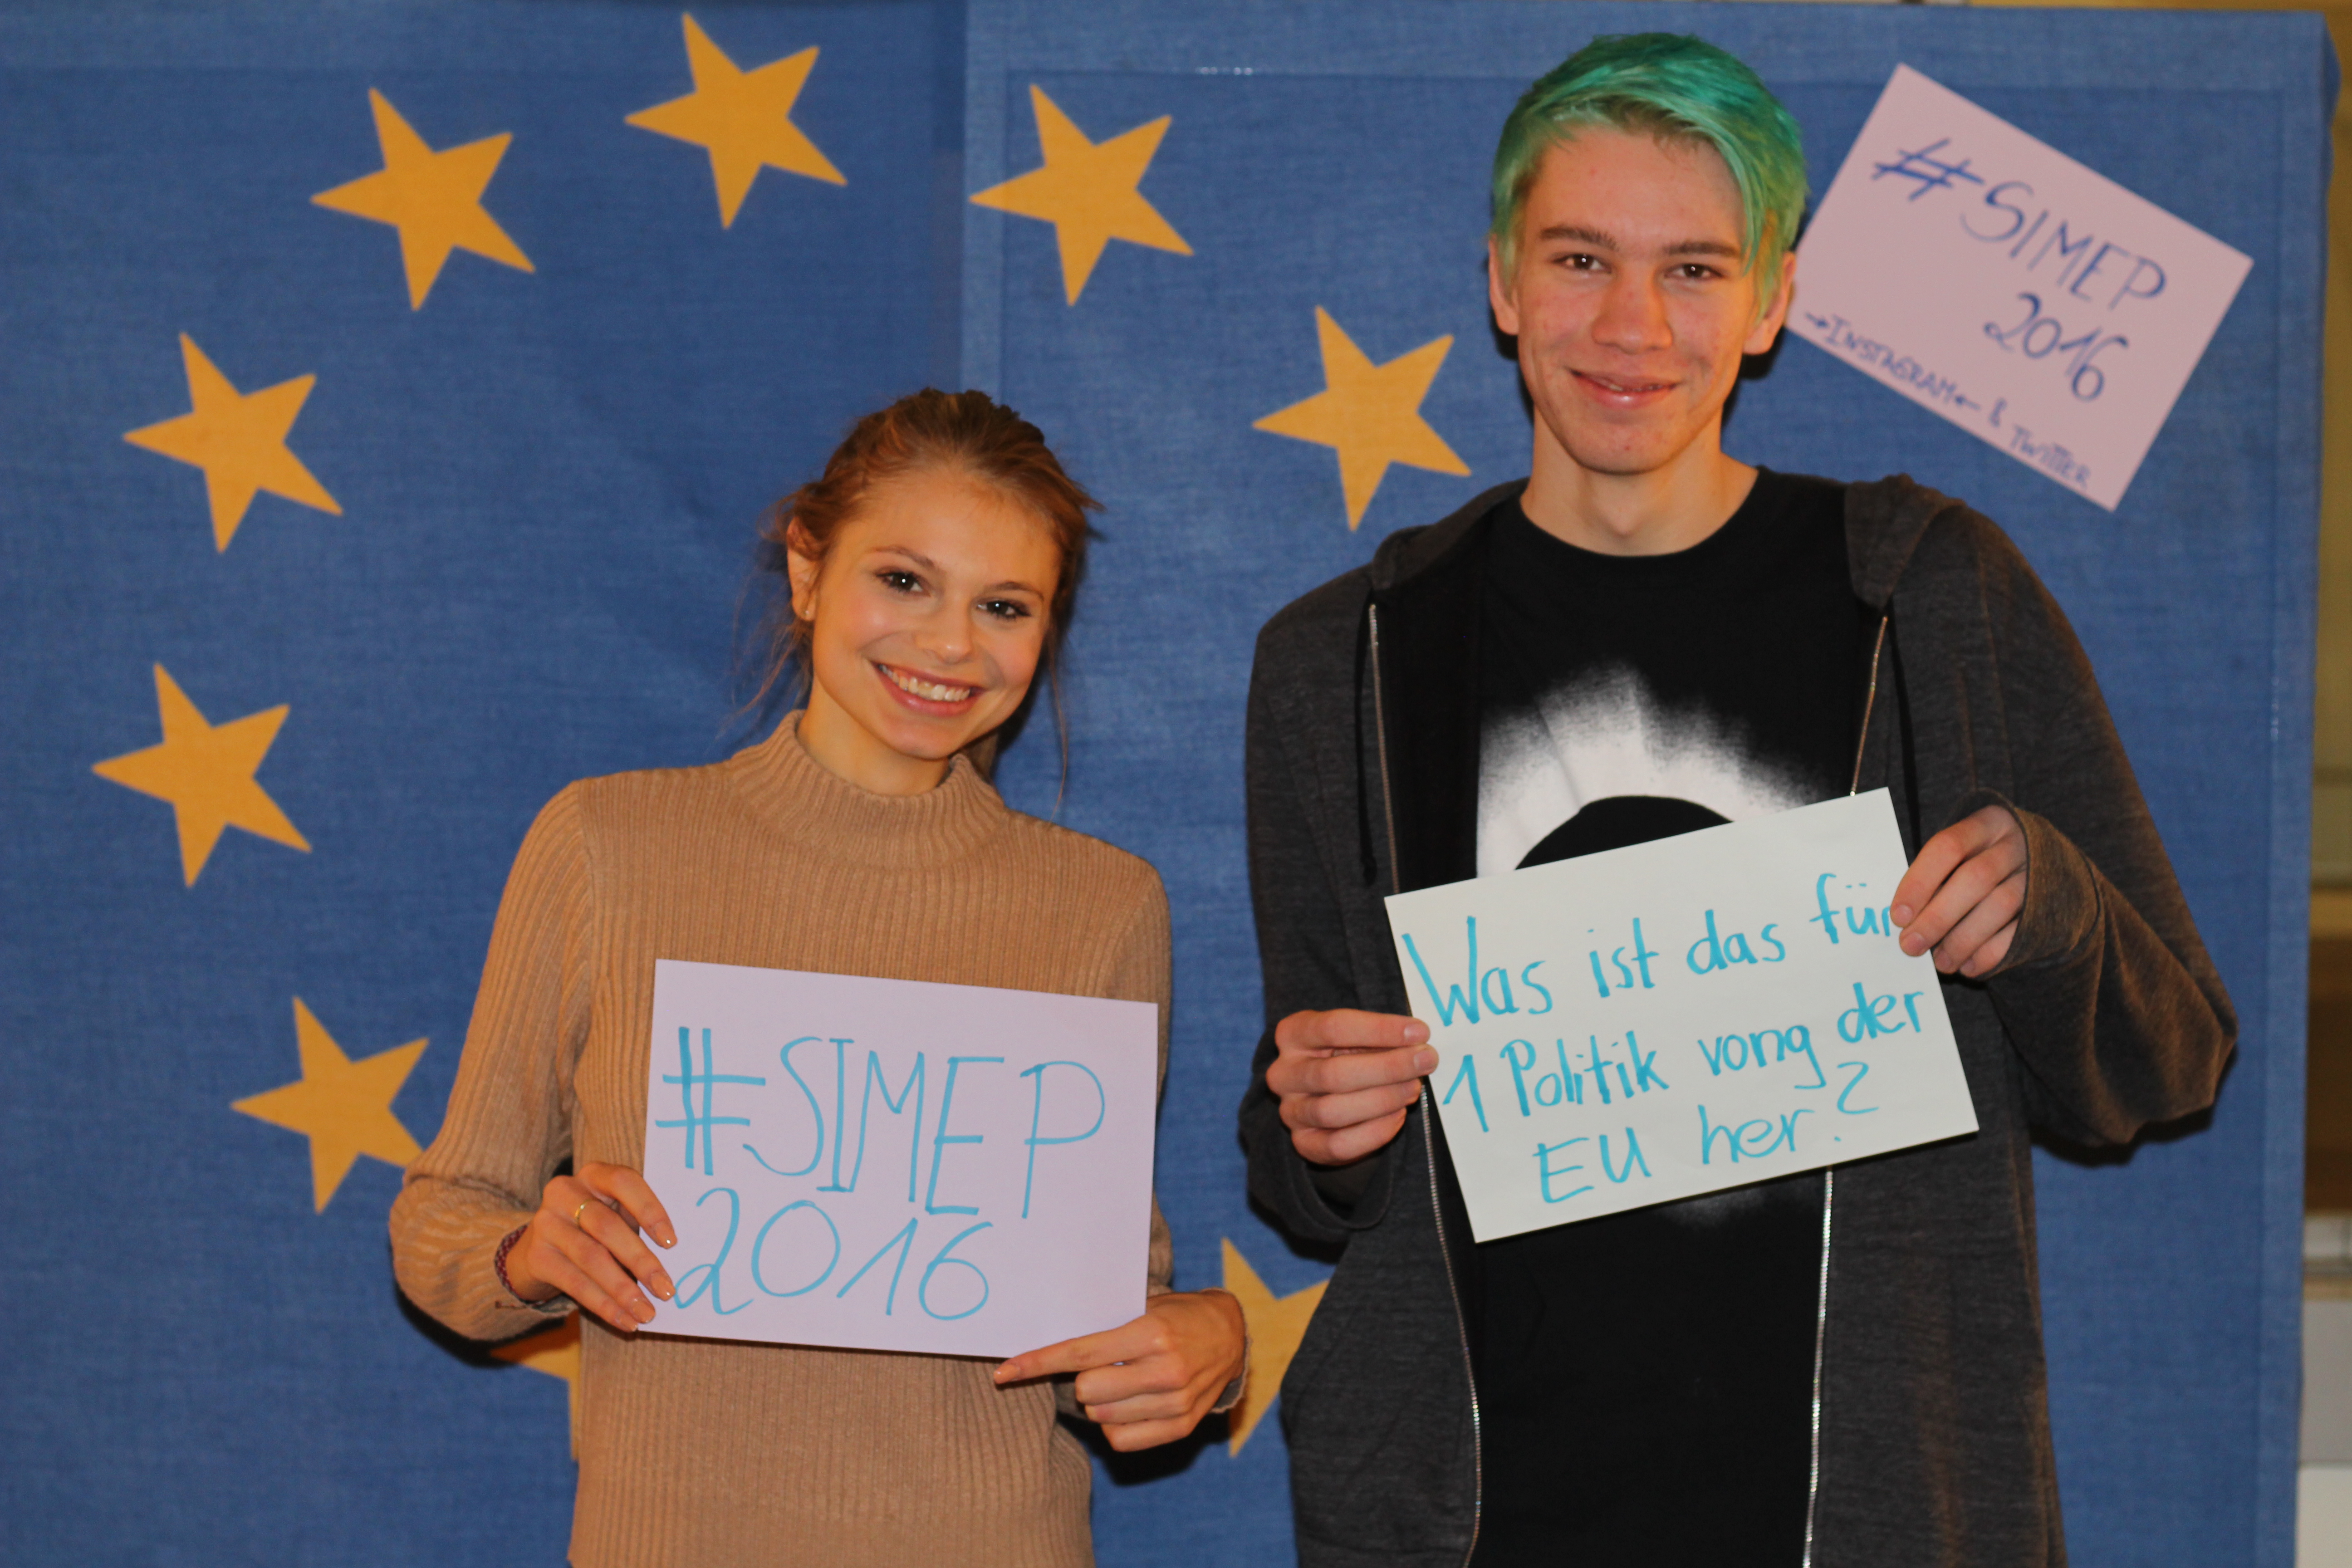 #SIMEP
2016
→INSTAGRAM← & TWITTER
#SIMEP
2016
Was ist das für
1 Politik vong der
EU her?